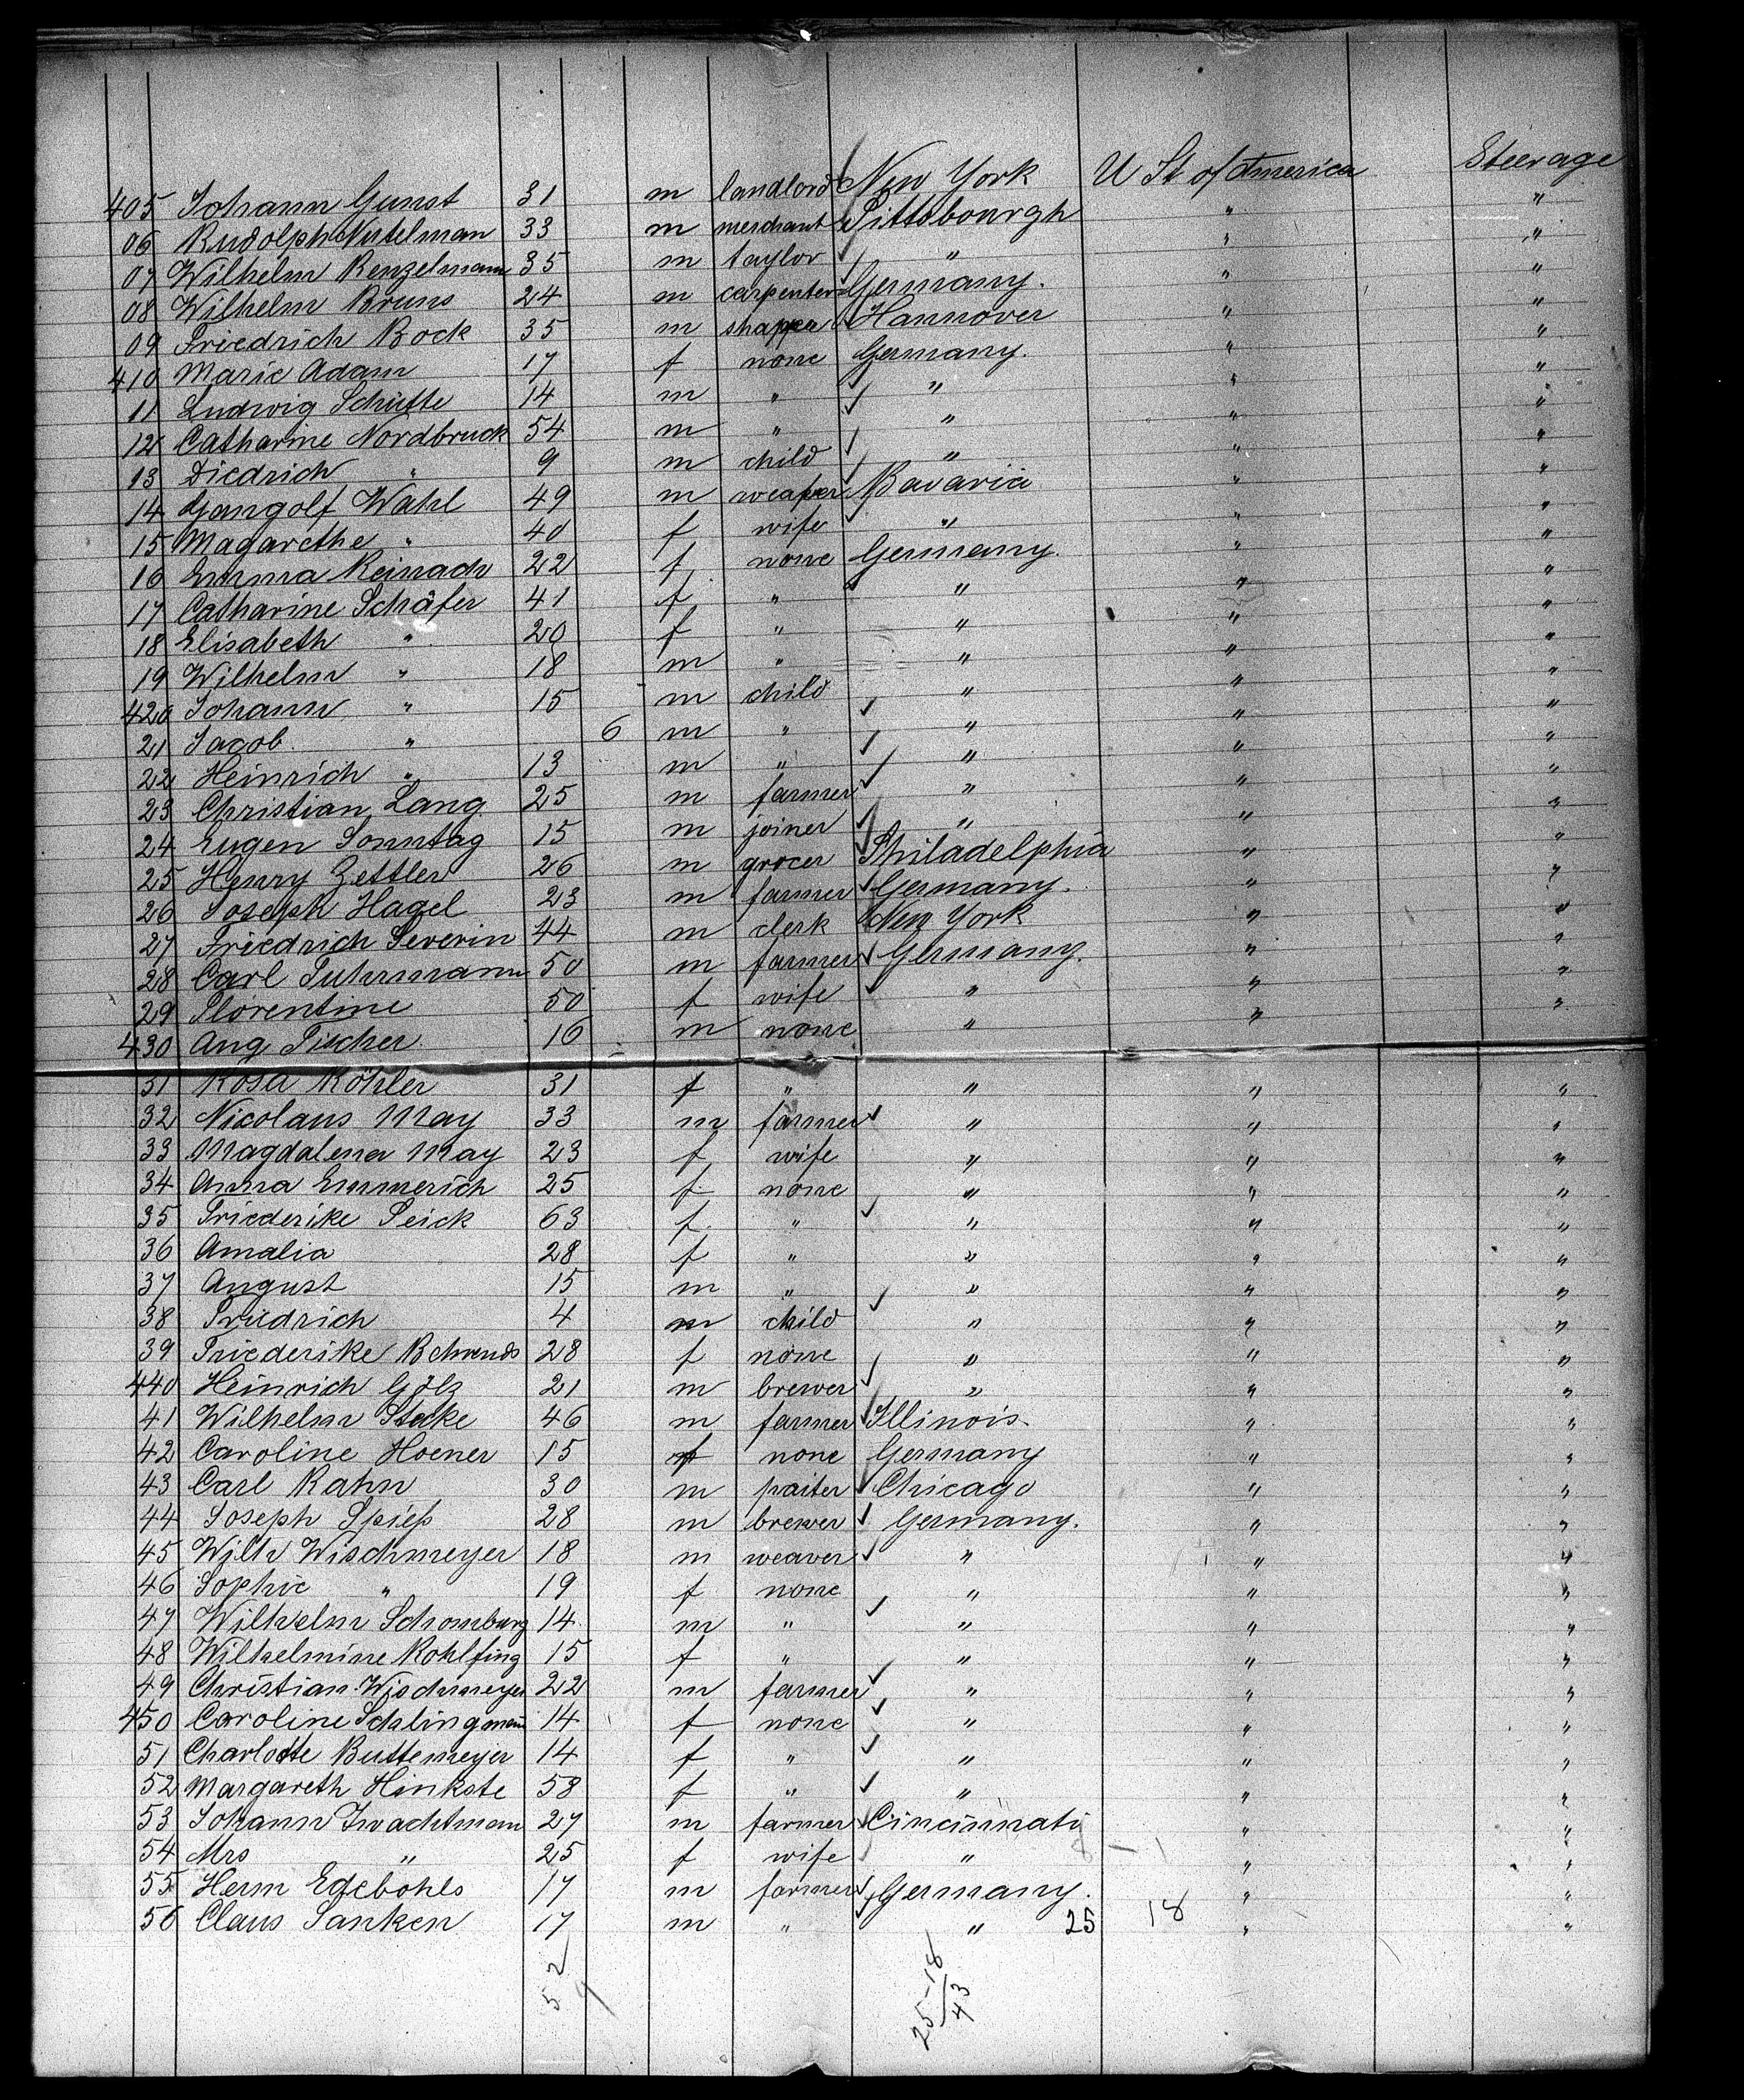 405 Johann Gunst 31 m landlord New York U St of America Steerage
06 Rudolph Nutelman 33 m merchant Pittsbourgh " "
07 Wilhelm Renzelmann 35 m taylor " " "
08 Wilhelm Bruns 24 m carpenter Germany. " "
09 Friedrich Bock 35 m Hannover " "
410 Marie Adam 17 f none Germany. " "
11 Ludwig Schütte 14 m " " " "
12 Catharine Nordbruck 54 m " " " "
13 Diedrich " 9 m child " " "
14 Gangolf Wahl 49 m weafer Bavaria " "
15 Magarethe " 40 f wife " " "
16 Emma Reinach 22 f none Germany. " "
17 Catharine Schäfer 41 f " " " "
18 Elisabeth " 20 f " " " "
19 Wilhelm " 18 m " " " "
420 Johann " 15 m child " " "
21 Jacob " 6 m " " " "
22 Heinrich " 13 m " " " "
23 Christian Lang 25 m farmer " " "
24 Eugen Sonntag 15 m joiner " " "
25 Henry Zettler 26 m grocer Philadelphia " "
26 Joseph Hagel 23 m farmer Germany. " "
27 Friedrich Severin 44 m clerk New York " "
28 Carl Fuhrmann 50 m farmer Germany. " "
29 Florentine 50 f wife " " "
430 Aug Fischer 16 m none " " "
31 Rosa Röhler 31 f " " " "
32 Nicolaus May 33 m farmer " " "
33 Magdalena May 23 f wife " " "
34 Anna Emmerich 25 f none " " "
35 Friederike Peick 63 f " " " "
36 Amalia 28 f " " " "
37 August 15 m " " " "
38 Friedrich 4 m child " " "
39 Friederike Behrends 28 f none " " "
440 Heinrich Gölz 21 m brewer " " "
41 Wilhelm Stake 46 m farmer Illinois. " "
42 Caroline Hoener 15 f none Germany " "
43 Carl Rahn 30 m paiter Chicago " "
44 Joseph Spieß 28 m brewer Germany. " "
45 Wilh Wischmeyer 18 m weaver " " "
46 Sophie " 19 f none " " "
47 Wilhelm Schomburg 14 m " " " "
48 Wilhelmine Kohlfing 15 f " " " "
49 Christian Wischmeyer 22 m farmer " " "
450 Caroline Schlingman 14 f none " " "
51 Charlotte Buttemeyer 14 f " " " "
52 Margareth Hinkste 58 f " " " "
53 Johann Zwachtman 27 m farmer Cincinnati " "
54 Mrs " 25 f wife " " "
55 Herm Edebohls 17 m farmer Germany. " "
56 Claus Janken 17 m " " 25 18 " "
52
9
25-18
43